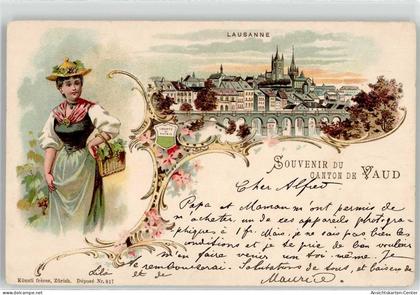 LAUSANNE
LIBERTÉ ET PATRIE
SOUVENIR DU
CANTON DE VAUD
Cher Alfred
Papa et Maman m'ont permis de
m'acheter, un de ces appareils photogra-
phiques à 1 f. Mais, je ne sais pas bien les
conditions et je te prie de bien vouloir
m'en faire venir un toi même. Je te
rembourserai. Salutations de tous, et baisers de
Lila et de Maurice.
Künzli frères, Zürich. Déposé Nr. 817
www.Ansichtskarten-Center.de